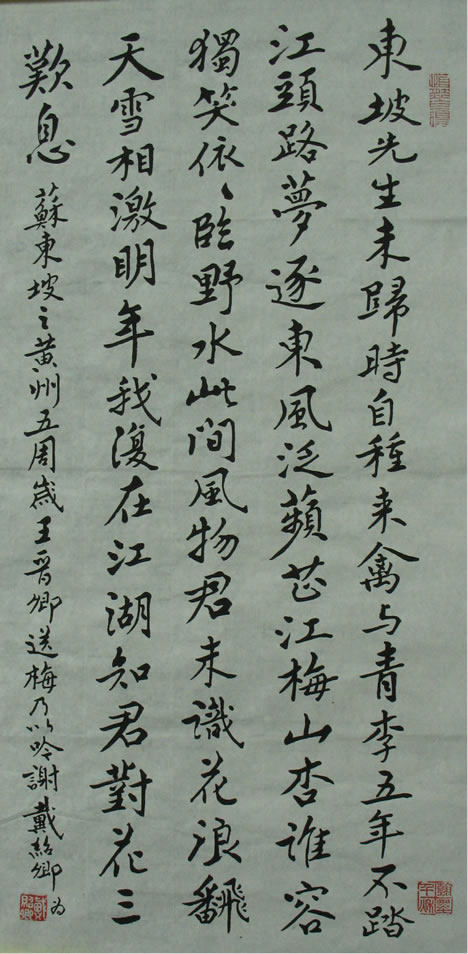 東坡先生未歸時自種来禽与青李五年不踏
江頭路夢逐東風泛蘋芷江梅山杏誰容
獨笑依〻臨野水此间風物君未識花浪飜
天雪相激明年我復在江湖知君對花三
歎息 蘇東坡之黄州五周歲王晋卿送梅乃以吟謝戴紹卿为